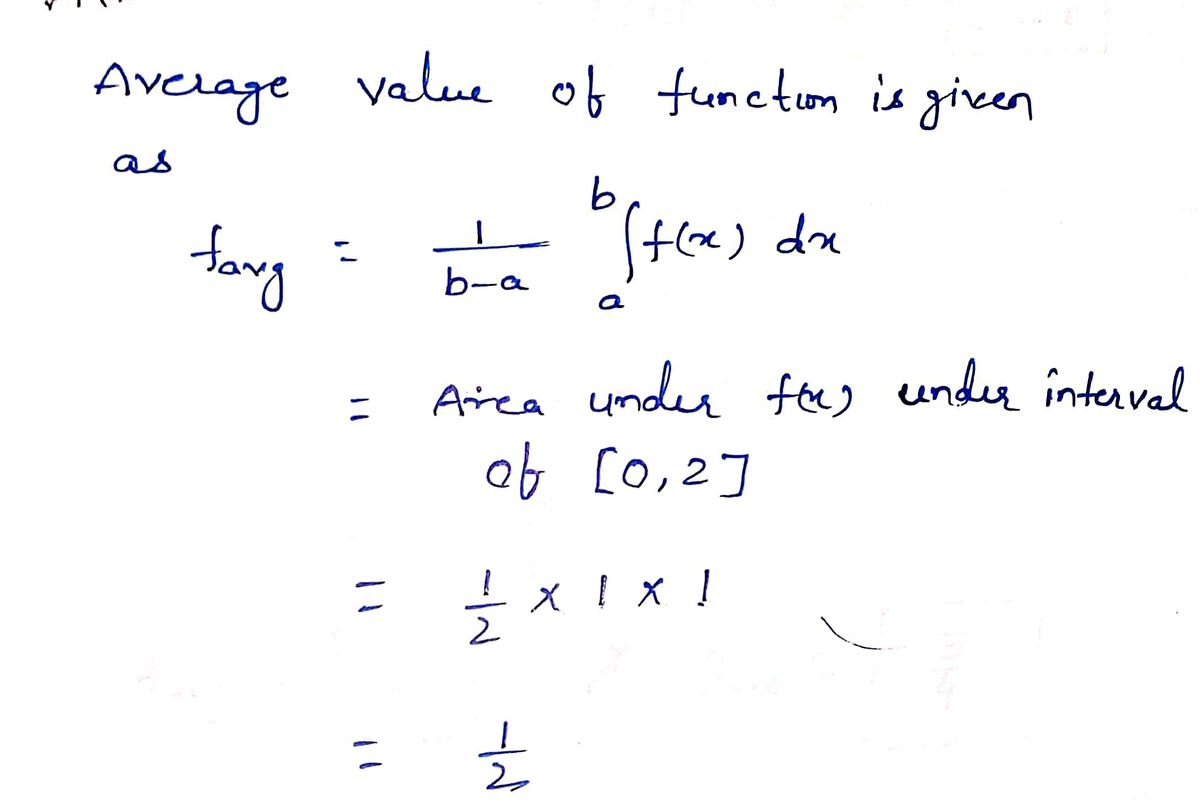 Average value of function is given
as
favg = 1/(b-a) ∫_a^b f(x) dx
= Area under f(x) under interval
of [0,2]
= 1/2 x 1 x 1
= 1/2